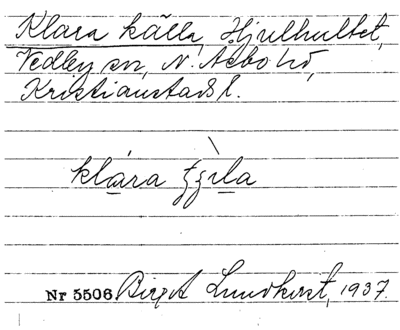 Klara källa, Hjulhultet,
Vedby sn, N. Åsbo hd,
Kristianstads l.
klara
Nr 5506 Birgit Lundkvist, 1937.